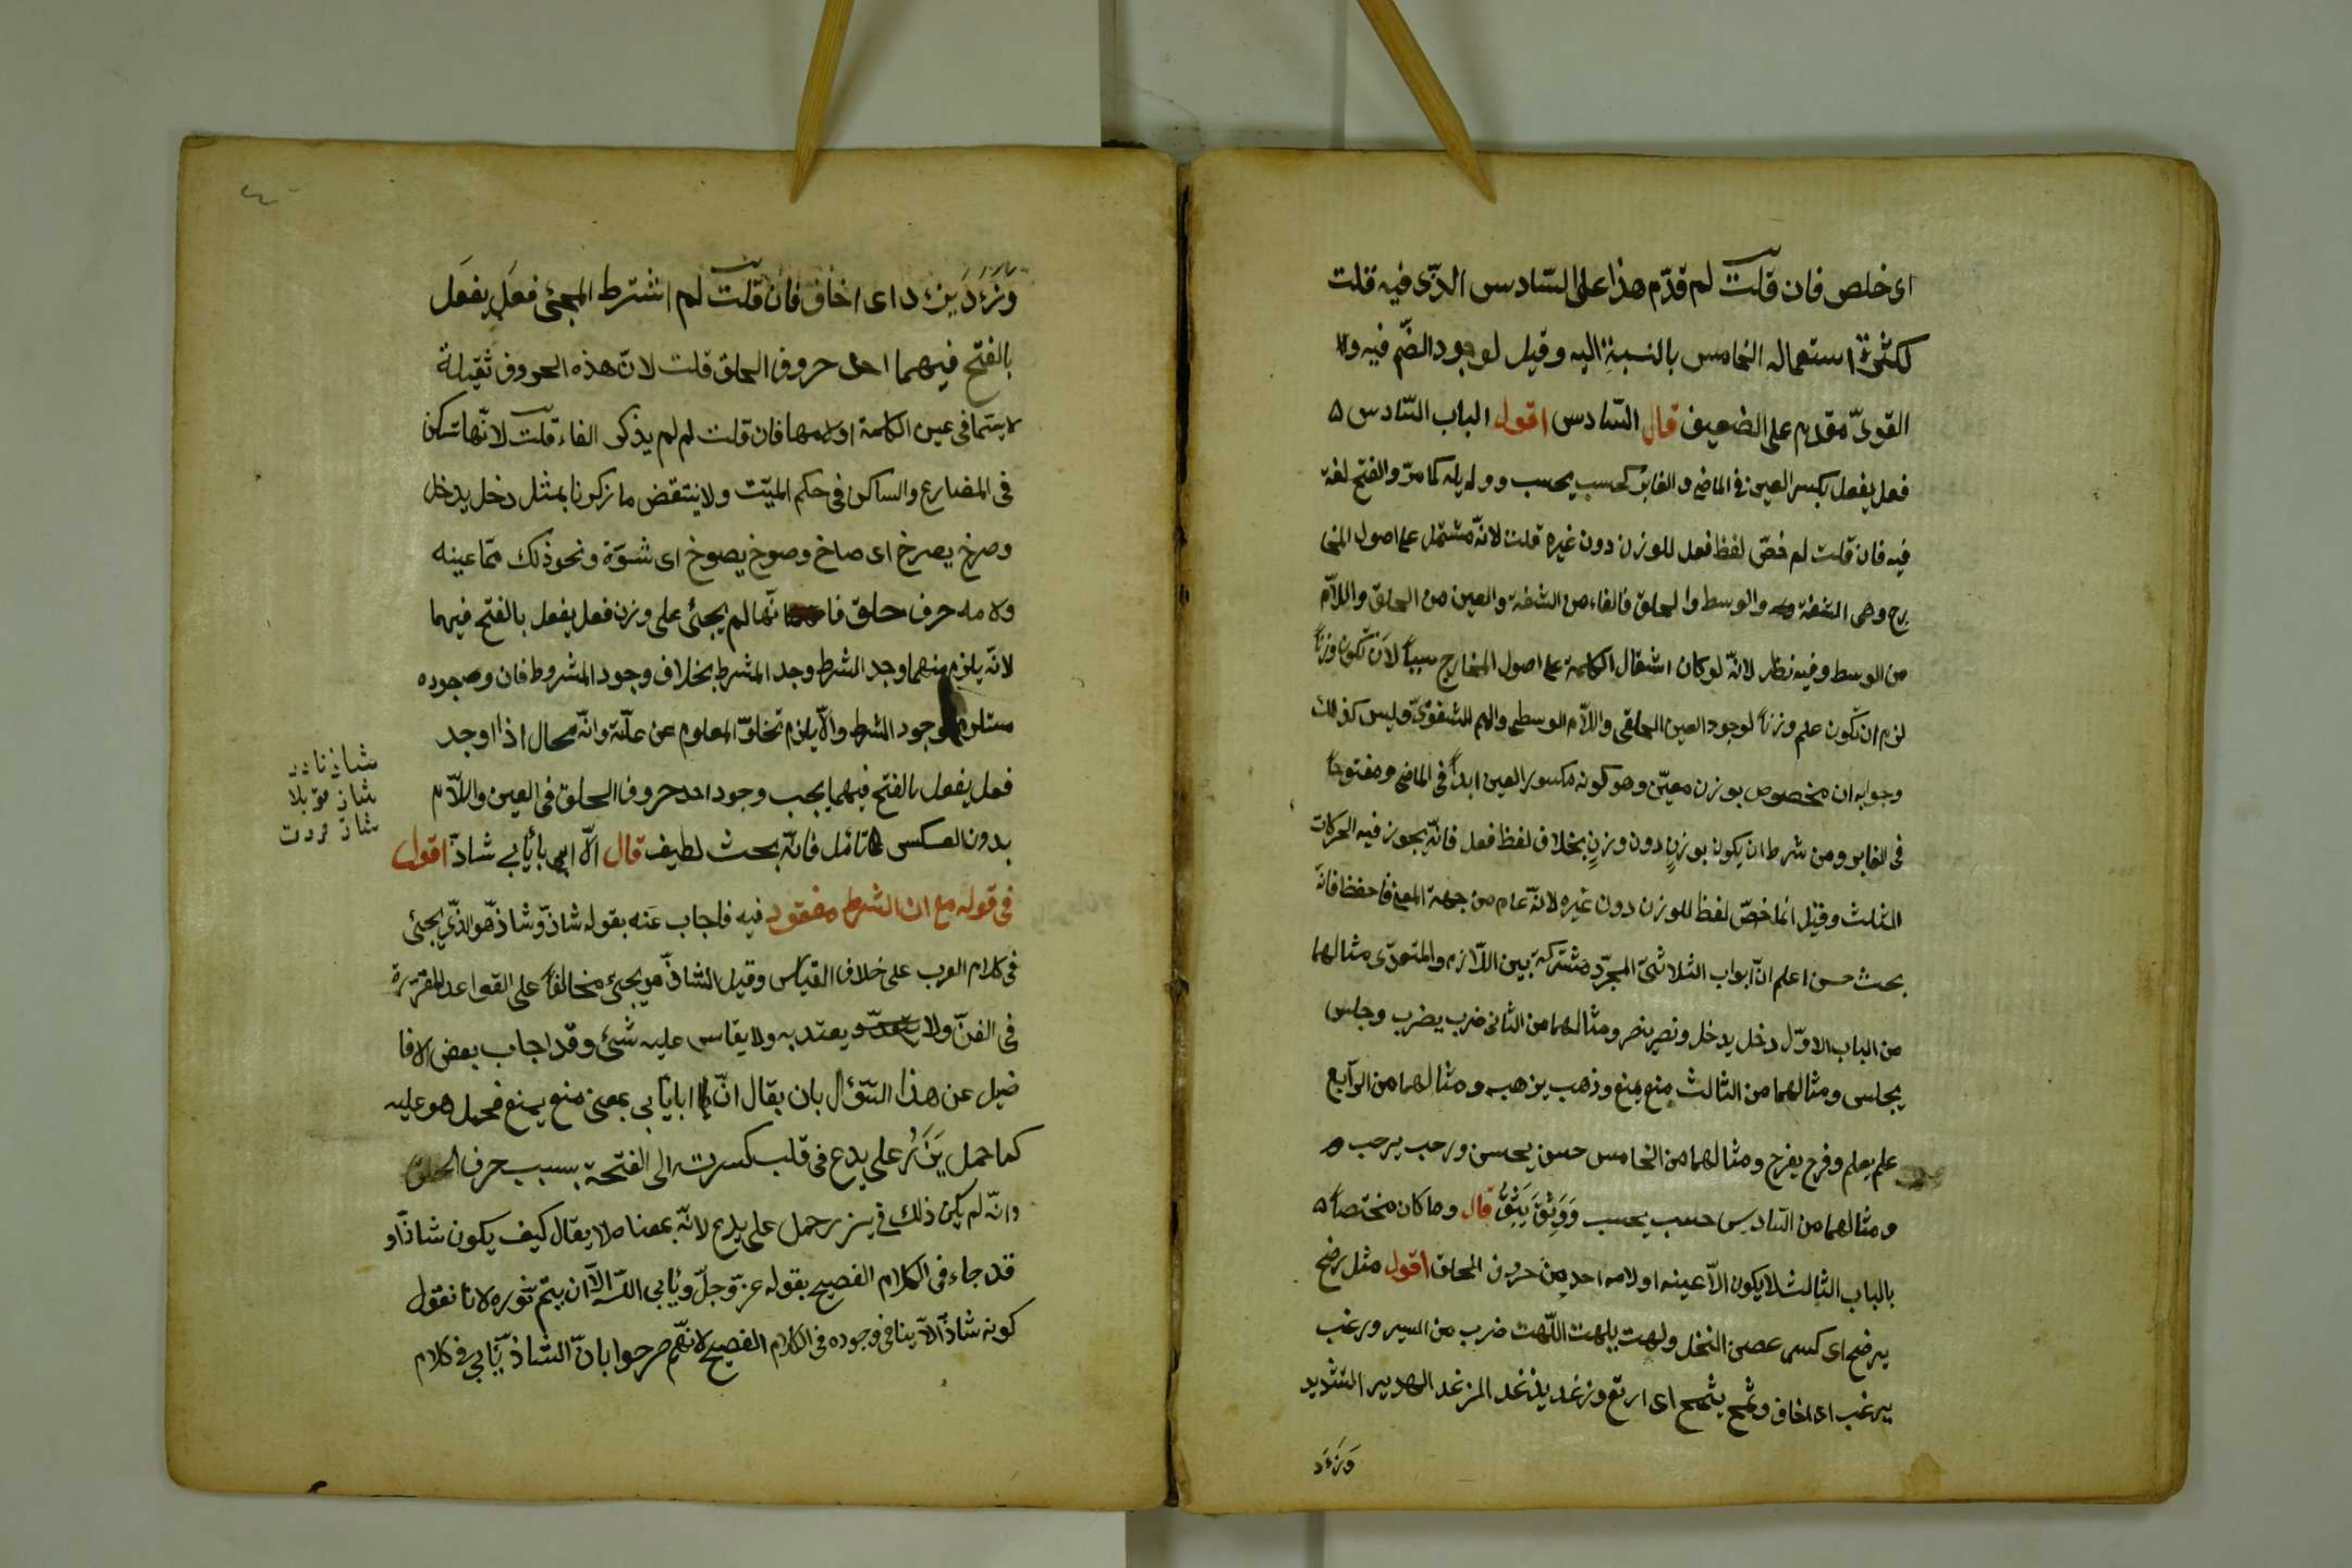 اى خلص فان قلت لم قدّم هذا على السّادس الذّى فيه قلت
لكثرة استعماله الخامس بالنسبة اليه وقيل لوجود الضّم فيه و
القوىّ مقدم على الضعيف قال السّادس اقول الباب السّادس
فعل يفعل بكسر العين فى الماضى والغابر كحسب يحسب ودليله كما مرّ والفتح لغة
فيه فان قلت لم خصّ لفظ فعل للوزن دون غيره قلت لانّه مشتمل على اصول المخا
رج وهى الشفة والوسط والحلق فالفاء من الشفة والعين من الحلق واللاّم
من الوسط وفيه نظر لانّه لو كان اشتمال الكلمة على اصول المخارج سبباً لان تكون وزناً
لزم ان تكون علم وزناً لوجود العين الحلقى واللاّم الوسطى والميم الشفوىّ وليس كذلك
وجوابه ان مخصوص بوزن معيّن وهو كونه مكسور العين ابداً فى الماضى ومفتوحاً
فى الغابر ومن شرط ان يكون بوزنٍ دون وزنٍ بخلاف لفظ فعل فانّه يجوز فيه الحركات
الثلث وقيل انما خصّ لفظ للوزن دون غيره لانّه عام من جهة المعنى فاحفظ فانّه
بحث حسن اعلم انّ ابواب الثلاثىّ المجرّد مشتركة بين اللاّزم والمتعدّى مثالهما
من الباب الاوّل دخل يدخل ونصر ينصر ومثالهما من الثانى ضرب يضرب وجلس
يجلس ومثالهما من الثالث منع يمنع وذهب يذهب ومثالهما من الرّابع
علم يعلم وفرح يفرح ومثالهما من الخامس حسن يحسن ورحب يرحب
ومثالهما من السّادس حسب يحسب وَوَثِقَ يَثِقُ قال وما كان مختصاً
بالباب الثالث لا يكون الاّ عينه او لامه احد من حروف الحلق اقول مثل رضح
يرضح اى كسر عصى النخل ولهت يلهت اللّهت ضرب من السير ورغب
يرغب اى اخاف وشمخ يشمخ اى ارتع وزغد يزغد المزغد الهدير الشديد
وَزَءَدَ
وَزَءَدَ يَزءد اى اخاف فان قلت لم اشترط المجئ فعَل يفعَل
بالفتح فيهما احد حروف الحلق قلت لانّ هذه الحروف ثقيلة
لا سيّما فى عين الكلمة او لامها فان قلت لم لم يذكر الفاء قلت لانّها تسكن
فى المضارع والساكن فى حكم الميّت ولا ينتقض ما ذكرنا بمثل دخل يدخل
وصرخ يصرخ اى صاخ وصوخ يصوخ اى شوّة ونحو ذلك ممّا عينه
ولامه حرف حلق فا انّها لم يجئ على وزن فعل يفعل بالفتح فيهما
لانّه يلزم منهما وجد الشرط وجد المشرط بخلاف وجود المشروط فان وجوده
مستلزم لوجود الشرط والاّ يلزم تخلوّ المعلوم عن علّة وانّه محال اذا اوجد
فعل يفعل بالفتح فيهما يجب وجود احد حروف الحلق فى العين واللاّم
بدون العكس تأمّل فانّه بحث لطيف قال الاّ ابى يأبى شاذّ اقول
فى قوله مع ان الشرط مفقود فيه فاجاب عنه بقوله شاذّ وشاذ هو الذّى يجئ
فى كلام العرب على خلاف القياس وقيل الشاذّ هو يجئ مخالفاً على القواعد المقرّرة
فى الفنّ ولا يعتدّ و يعتد به ولا يقاس عليه شئ وقد اجاب بعض الافا
ضيل عن هذا السّؤال بان يقال انّ ابا يأبى بمعنى منع يمنع فحمل هو عليه
كما حمل يَذَرُ على يدع فى قلب كسرته الى الفتحة بسبب حرف الحلق
وانّه لم يكن ذلك فى يذر حمل على يدع لانّه بمعناه لا يقال كيف يكون شاذّاً و
قد جاء فى الكلام الفصيح بقوله عزّ وجلّ ويأبى اللّه الاّ ان يتمّ نوره لانا نقول
كونه شاذّاً لا ينافى وجوده فى الكلام الفصيح لانّهم صرحوا بانّ الشاذ يأبى فى كلام
شاذ نادر
شاذ
شاذ